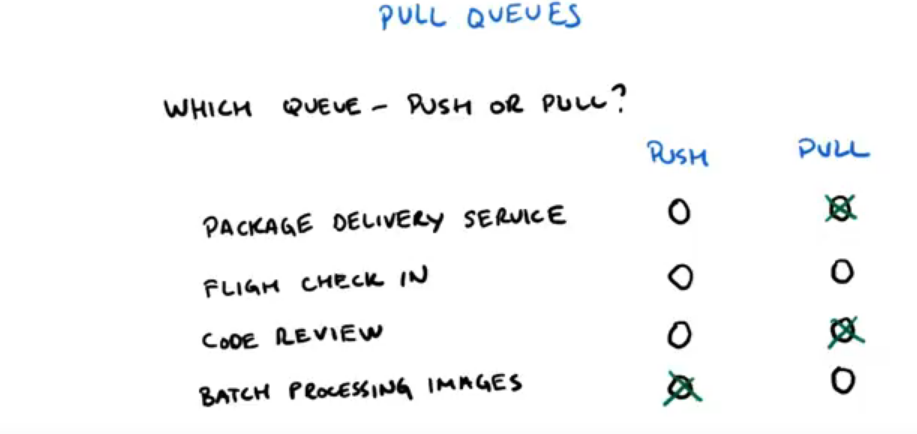 PULL QUEUES
WHICH QUEUE - PUSH OR PULL?
PUSH PULL
PACKAGE DELIVERY SERVICE
FLIGH CHECK IN
CODE REVIEW
BATCH PROCESSING IMAGES